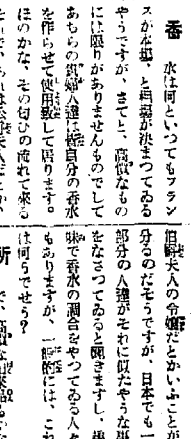 香水は何といつてもフラン
スが本場、と相場が決まつてゐる
やうですが、さてと、高價なもの
には限りがありませんものでして
あちらの貴婦人達は皆自分の香水
を作らせて使用致して居ります。
ほのかな、その匂ひの流れて來る
伯爵夫人の令孃だとかいふことが
分るのださうですが、日本でも一
部分の人達がそれに似たやうな
をなさつてゐると聞きますし、
味で香水の調合をやつてゐる人々
もありますが、一般的には、これ
は何うでせう?
所